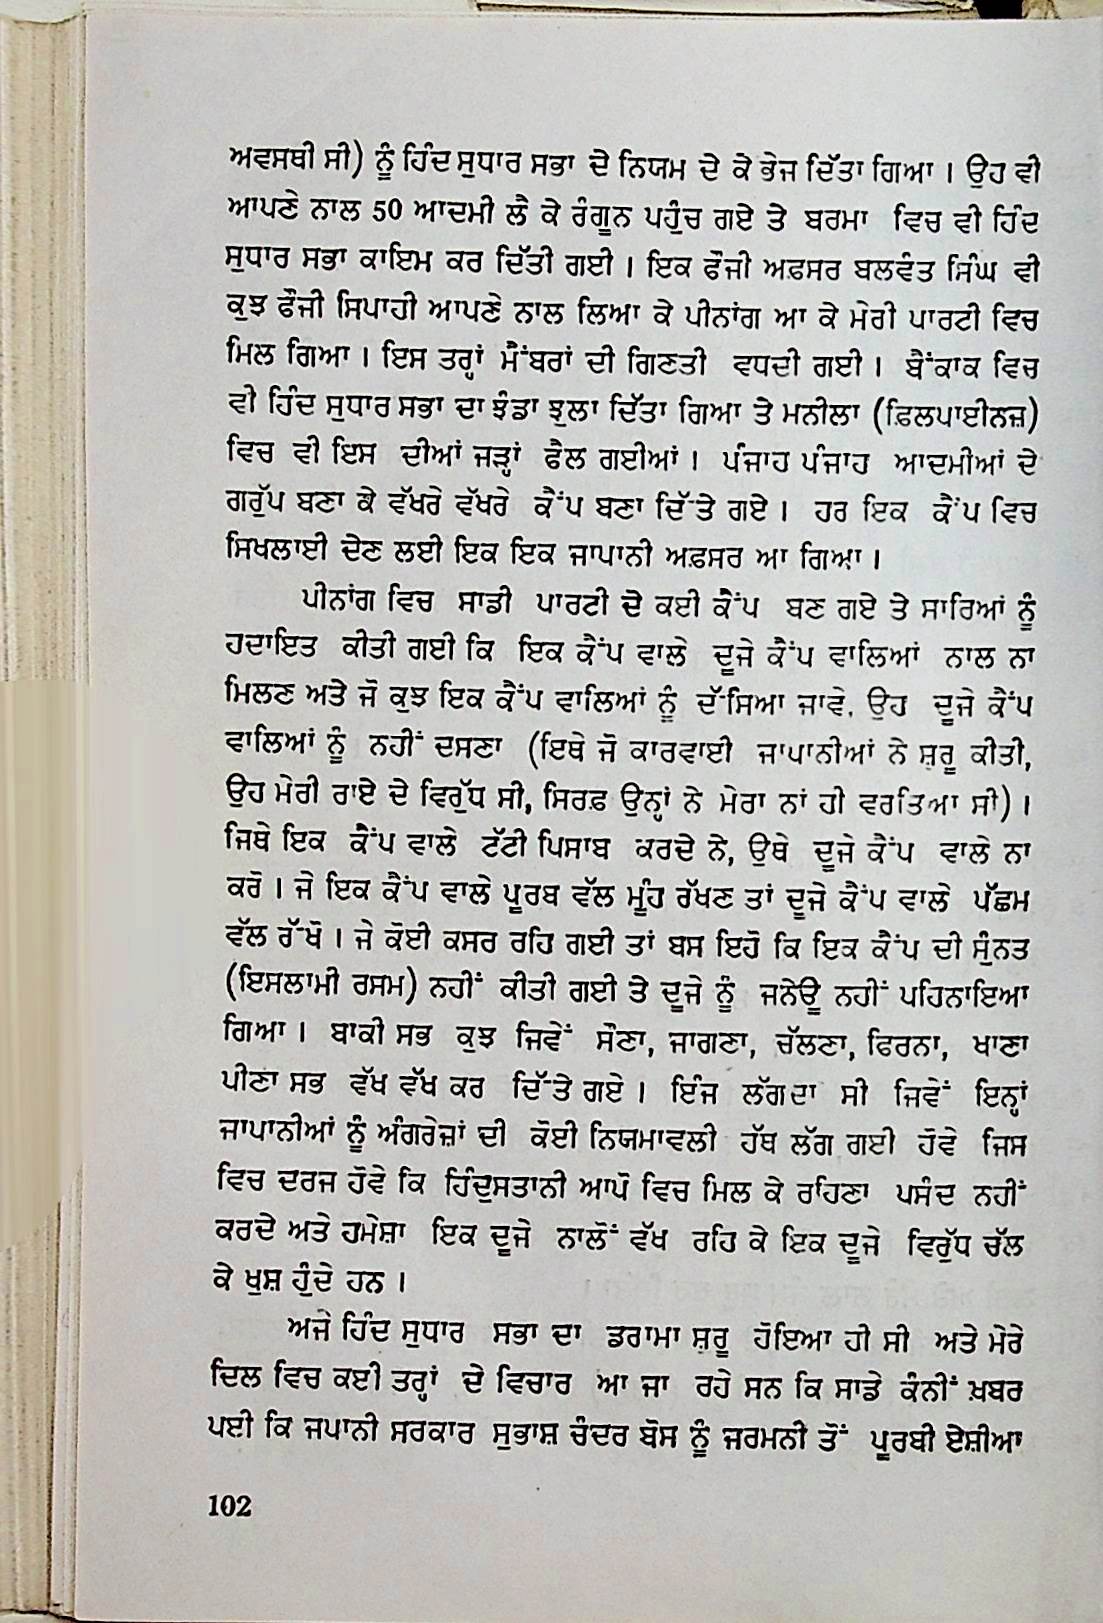 ਅਵਸਥੀ ਸੀ) ਨੂੰ ਹਿੰਦ ਸੁਧਾਰ ਸਭਾ ਦੇ ਨਿਯਮ ਦੇ ਕੇ ਭੇਜ ਦਿੱਤਾ ਗਿਆ । ਉਹ ਵੀ
ਆਪਣੇ ਨਾਲ 50 ਆਦਮੀ ਲੈ ਕੇ ਰੰਗੂਨ ਪਹੁੰਚ ਗਏ ਤੇ ਬਰਮਾ ਵਿਚ ਵੀ ਹਿੰਦ
ਸੁਧਾਰ ਸਭਾ ਕਾਇਮ ਕਰ ਦਿੱਤੀ ਗਈ । ਇਕ ਫੌਜੀ ਅਫ਼ਸਰ ਬਲਵੰਤ ਸਿੰਘ ਵੀ
ਕੁਝ ਫੌਜੀ ਸਿਪਾਹੀ ਆਪਣੇ ਨਾਲ ਲਿਆ ਕੇ ਪੀਨਾਂਗ ਆ ਕੇ ਮੇਰੀ ਪਾਰਟੀ ਵਿਚ
ਮਿਲ ਗਿਆ । ਇਸ ਤਰ੍ਹਾਂ ਮੈਂਬਰਾਂ ਦੀ ਗਿਣਤੀ ਵਧਦੀ ਗਈ । ਬੈਂਕਾਕ ਵਿਚ
ਵੀ ਹਿੰਦ ਸੁਧਾਰ ਸਭਾ ਦਾ ਝੰਡਾ ਝੁਲਾ ਦਿੱਤਾ ਗਿਆ ਤੇ ਮਨੀਲਾ (ਫ਼ਿਲਪਾਈਨਜ਼)
ਵਿਚ ਵੀ ਇਸ ਦੀਆਂ ਜੜ੍ਹਾਂ ਫੈਲ ਗਈਆਂ । ਪੰਜਾਹ ਪੰਜਾਹ ਆਦਮੀਆਂ ਦੇ
ਗਰੁੱਪ ਬਣਾ ਕੇ ਵੱਖਰੇ ਵੱਖਰੇ ਕੈਂਪ ਬਣਾ ਦਿੱਤੇ ਗਏ । ਹਰ ਇਕ ਕੈਂਪ ਵਿਚ
ਸਿਖਲਾਈ ਦੇਣ ਲਈ ਇਕ ਇਕ ਜਾਪਾਨੀ ਅਫ਼ਸਰ ਆ ਗਿਆ ।
ਪੀਨਾਂਗ ਵਿਚ ਸਾਡੀ ਪਾਰਟੀ ਦੇ ਕਈ ਕੈਂਪ ਬਣ ਗਏ ਤੇ ਸਾਰਿਆਂ ਨੂੰ
ਹਦਾਇਤ ਕੀਤੀ ਗਈ ਕਿ ਇਕ ਕੈਂਪ ਵਾਲੇ ਦੂਜੇ ਕੈਂਪ ਵਾਲਿਆਂ ਨਾਲ ਨਾ
ਮਿਲਣ ਅਤੇ ਜੋ ਕੁਝ ਇਕ ਕੈਂਪ ਵਾਲਿਆਂ ਨੂੰ ਦੱਸਿਆ ਜਾਵੇ, ਉਹ ਦੂਜੇ ਕੈਂਪ
ਵਾਲਿਆਂ ਨੂੰ ਨਹੀਂ ਦਸਣਾ (ਇਥੇ ਜੋ ਕਾਰਵਾਈ ਜਾਪਾਨੀਆਂ ਨੇ ਸ਼ੁਰੂ ਕੀਤੀ,
ਉਹ ਮੇਰੀ ਰਾਏ ਦੇ ਵਿਰੁੱਧ ਸੀ, ਸਿਰਫ਼ ਉਨ੍ਹਾਂ ਨੇ ਮੇਰਾ ਨਾਂ ਹੀ ਵਰਤਿਆ ਸੀ) ।
ਜਿਥੇ ਇਕ ਕੈਂਪ ਵਾਲੇ ਟੱਟੀ ਪਿਸਾਬ ਕਰਦੇ ਨੇ, ਉਥੇ ਦੂਜੇ ਕੈਂਪ ਵਾਲੇ ਨਾ
ਕਰੋ । ਜੇ ਇਕ ਕੈਂਪ ਵਾਲੇ ਪੂਰਬ ਵੱਲ ਮੂੰਹ ਰੱਖਣ ਤਾਂ ਦੂਜੇ ਕੈਂਪ ਵਾਲੇ ਪੱਛਮ
ਵੱਲ ਰੱਖੋ । ਜੇ ਕੋਈ ਕਸਰ ਰਹਿ ਗਈ ਤਾਂ ਬਸ ਇਹੋ ਕਿ ਇਕ ਕੈਂਪ ਦੀ ਸੁੰਨਤ
(ਇਸਲਾਮੀ ਰਸਮ) ਨਹੀਂ ਕੀਤੀ ਗਈ ਤੇ ਦੂਜੇ ਨੂੰ ਜਨੇਊ ਨਹੀਂ ਪਹਿਨਾਇਆ
ਗਿਆ । ਬਾਕੀ ਸਭ ਕੁਝ ਜਿਵੇਂ ਸੌਣਾ, ਜਾਗਣਾ, ਚੱਲਣਾ, ਫਿਰਨਾ, ਖਾਣਾ
ਪੀਣਾ ਸਭ ਵੱਖ ਵੱਖ ਕਰ ਦਿੱਤੇ ਗਏ । ਇੰਜ ਲੱਗਦਾ ਸੀ ਜਿਵੇਂ ਇਨ੍ਹਾਂ
ਜਾਪਾਨੀਆਂ ਨੂੰ ਅੰਗਰੇਜ਼ਾਂ ਦੀ ਕੋਈ ਨਿਯਮਾਵਲੀ ਹੱਥ ਲੱਗ ਗਈ ਹੋਵੇ ਜਿਸ
ਵਿਚ ਦਰਜ ਹੋਵੇ ਕਿ ਹਿੰਦੁਸਤਾਨੀ ਆਪੋ ਵਿਚ ਮਿਲ ਕੇ ਰਹਿਣਾ ਪਸੰਦ ਨਹੀਂ
ਕਰਦੇ ਅਤੇ ਹਮੇਸ਼ਾ ਇਕ ਦੂਜੇ ਨਾਲੋਂ ਵੱਖ ਰਹਿ ਕੇ ਇਕ ਦੂਜੇ ਵਿਰੁੱਧ ਚੱਲ
ਕੇ ਖੁਸ਼ ਹੁੰਦੇ ਹਨ ।
ਅਜੇ ਹਿੰਦ ਸੁਧਾਰ ਸਭਾ ਦਾ ਡਰਾਮਾ ਸ਼ੁਰੂ ਹੋਇਆ ਹੀ ਸੀ ਅਤੇ ਮੇਰੇ
ਦਿਲ ਵਿਚ ਕਈ ਤਰ੍ਹਾਂ ਦੇ ਵਿਚਾਰ ਆ ਜਾ ਰਹੇ ਸਨ ਕਿ ਸਾਡੇ ਕੰਨੀਂ ਖ਼ਬਰ
ਪਈ ਕਿ ਜਪਾਨੀ ਸਰਕਾਰ ਸੁਭਾਸ਼ ਚੰਦਰ ਬੋਸ ਨੂੰ ਜਰਮਨੀ ਤੋਂ ਪੂਰਬੀ ਏਸ਼ੀਆ
102